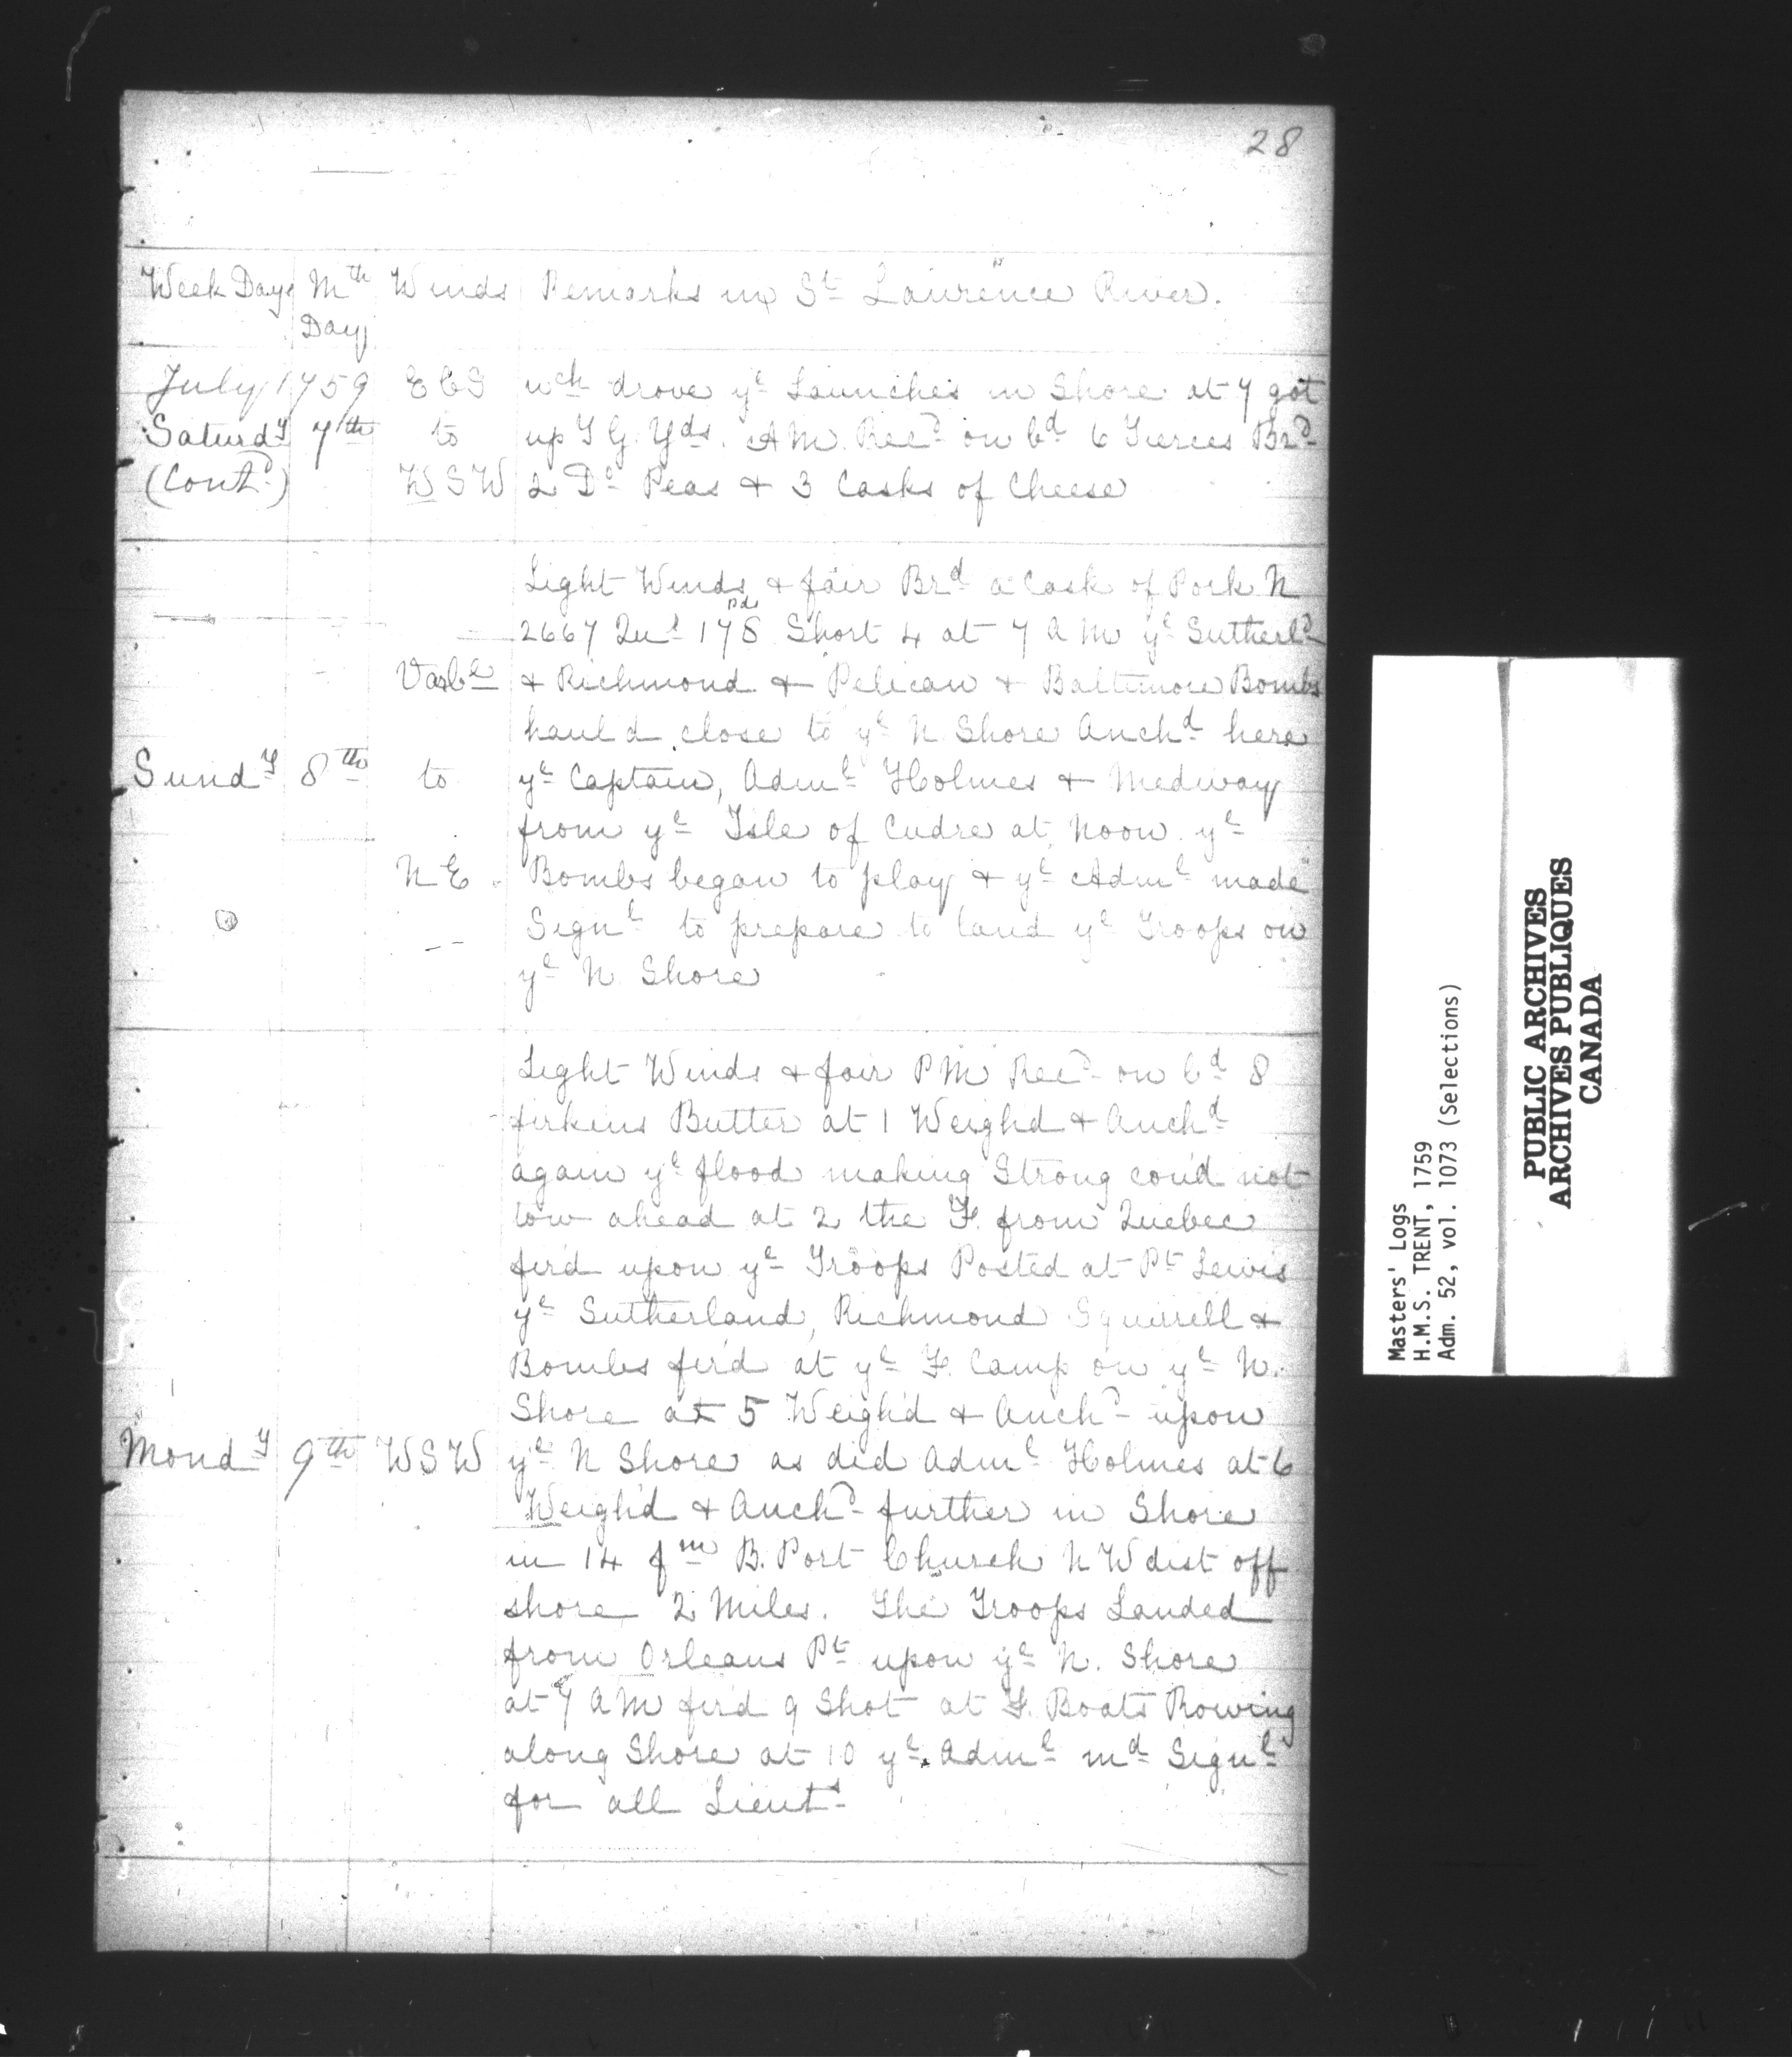 28
Week Days Mth Day Winds Remarks in St Lawrence River.
July 1759 EbS wch drove ye Launches in Shore at 7 got
Saturdy 7th to up T G Yds. AM Recd on bd 6 Tierces Brd
(Contd) WSW 2 Do Peas & 3 Casks of Cheese
Light Winds & fair Brd a Cask of Pork N
2667 Qut 178 Pds Short 4 at 7 A M ye Sutherld
Varble & Richmond & Pelican & Baltimore Bombs
haul'd close to ye N Shore Anchd here
Sundy 8th to ye Captain, Adml Holmes & Medway
from ye Isle of Cudre at Noon ye
N E Bombs began to play & ye Adml made
Signl to prepare to land ye Troops on
ye N Shore
Light Winds & fair PM Recd on bd 8
firkins Butter at 1 Weigh'd & Anchd
again ye flood making Strong cou'd not
tow ahead at 2 the F. from Quebec
fir'd upon ye Troops Posted at Pt Lewis
ye Sutherland, Richmond Squirrell &
Bombs fir'd at ye F. Camp on ye N.
Shore at 5 Weigh'd & Anchd upon
Mondy 9th WSW ye N Shore as did Adml Holmes at 6
Weigh'd & Anchd further in Shore
in 14 fm B. Port Church N W dist off
shore 2 Miles. The Troops Landed
from Orleans Pt upon ye N. Shore
at 7 A M fir'd 9 Shot at F. Boats Rowing
along Shore at 10 ye Adml md Signl
for all Lieuts
Masters' Logs
H.M.S. TRENT, 1759
Adm. 52, vol. 1073 (Selections)
PUBLIC ARCHIVES
ARCHIVES PUBLIQUES
CANADA